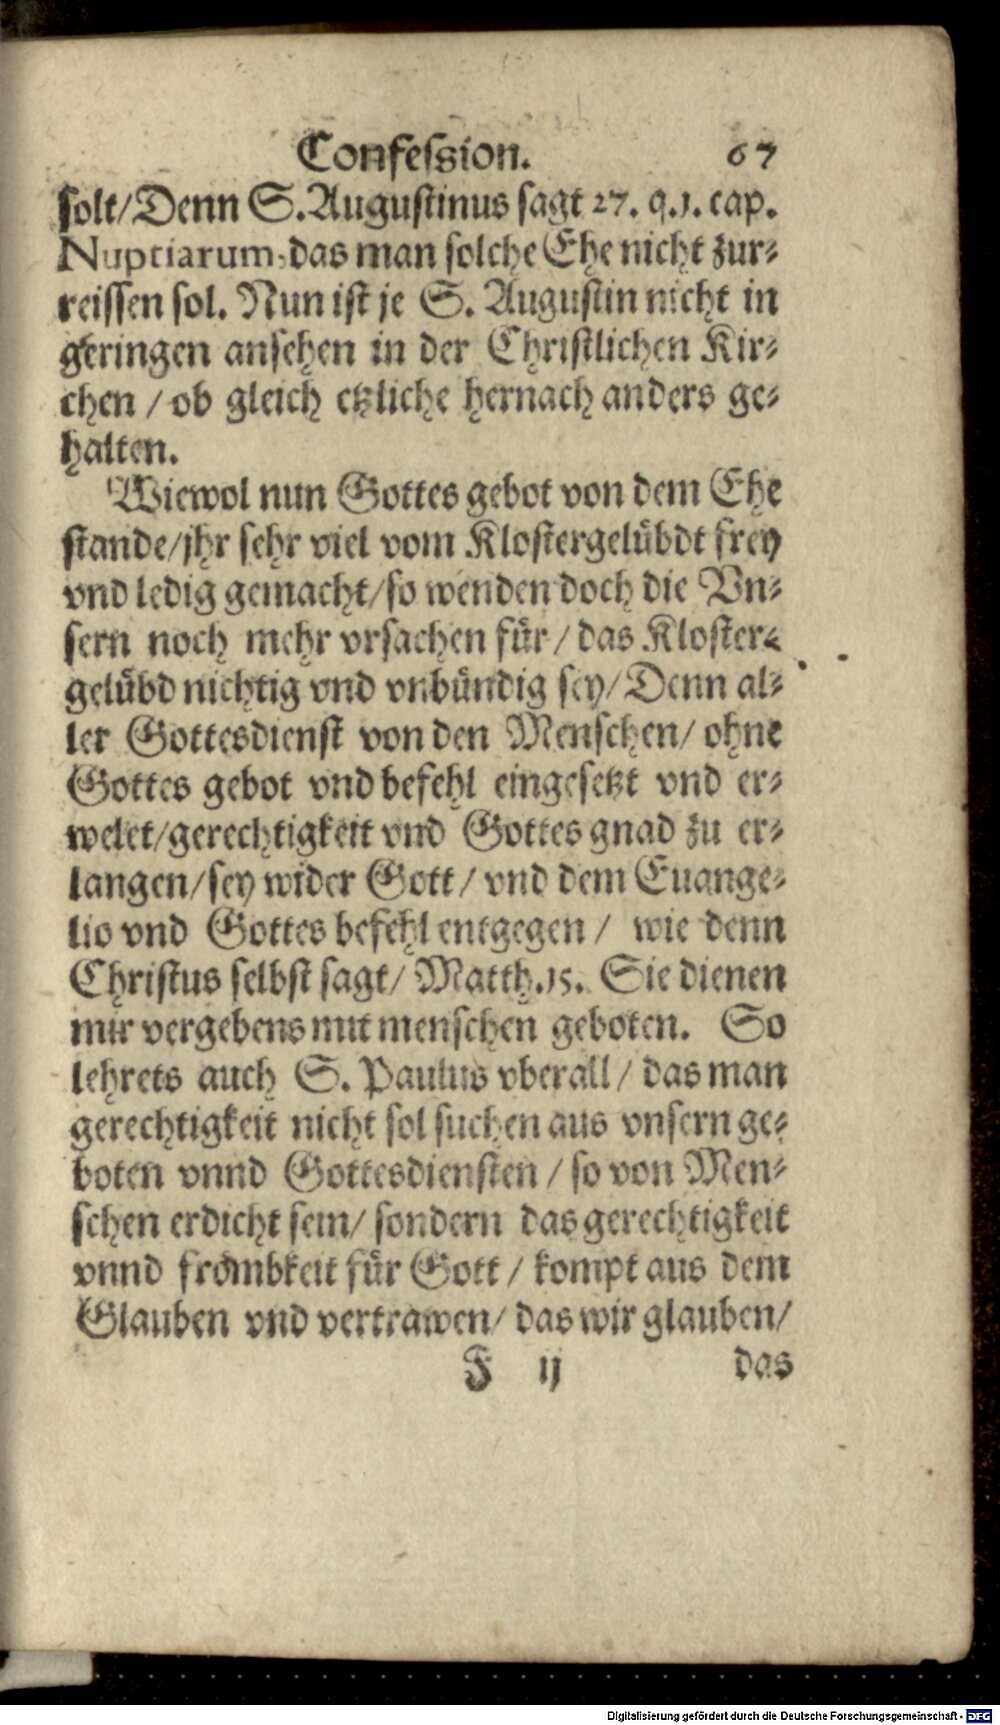 Confession. 67
solt/Denn S.Augustinus sagt 27. q.1. cap.
Nuptiarum, das man solche Ehe nicht zur⸗
reissen sol. Nun ist je S. Augustin nicht in
geringen ansehen in der Christlichen Kir⸗
chen / ob gleich etzliche hernach anders ge⸗
halten.
Wiewol nun Gottes gebot von dem Ehe
stande/jhr sehr viel vom Klostergelübdt frey
vnd ledig gemacht/so wenden doch die Vn⸗
sern noch mehr vrsachen für / das Kloster⸗
gelübd nichtig vnd vnbündig sey/ Denn al⸗
ler Gottesdienst von den Menschen/ ohne
Gottes gebot vnd befehl eingesetzt vnd er⸗
welet/gerechtigkeit vnd Gottes gnad zu er⸗
langen/sey wider Gott / vnd dem Euange⸗
lio vnd Gottes befehl entgegen / wie denn
Christus selbst sagt/ Matth.15. Sie dienen
mir vergebens mit menschen geboten. So
lehrets auch S. Paulus vberall / das man
gerechtigkeit nicht sol suchen aus vnsern ge⸗
boten vnnd Gottesdiensten / so von Men⸗
schen erdicht sein/ sondern das gerechtigkeit
vnnd frömbkeit für Gott / kompt aus dem
Glauben vnd vertrawen/ das wir glauben/
F ij das
Digitalisierung gefördert durch die Deutsche Forschungsgemeinschaft - DFG